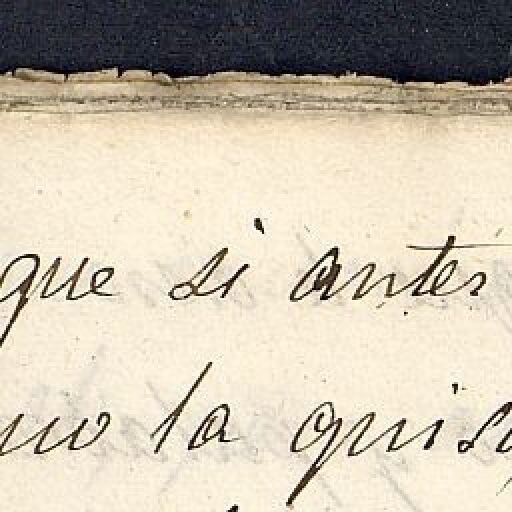 que si antes
no la quis